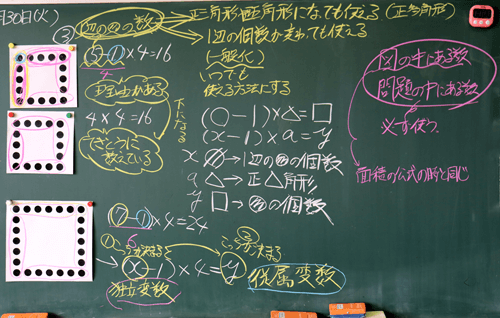 月30日(火)
③ 辺の●の数
正三角形や正五角形になっても使える(正多角形)
1辺の個数が変わっても使える
(一般化)
いつでも
使える方法にする
(5-1)×4=16
4
理由がある
4×4=16
てきとうに
数えている
下になる
(○-1)×△=□
(x-1)×a=y
x ○→1辺の●の個数
a △→正△角形
y □→●の個数
図の中にある数
問題の中にある数
必ず使う
面積の公式の時と同じ
(7-1)×4=24
6
①こっちが決まる
②こっち決まる
(x-1)×4=y
独立変数
従属変数